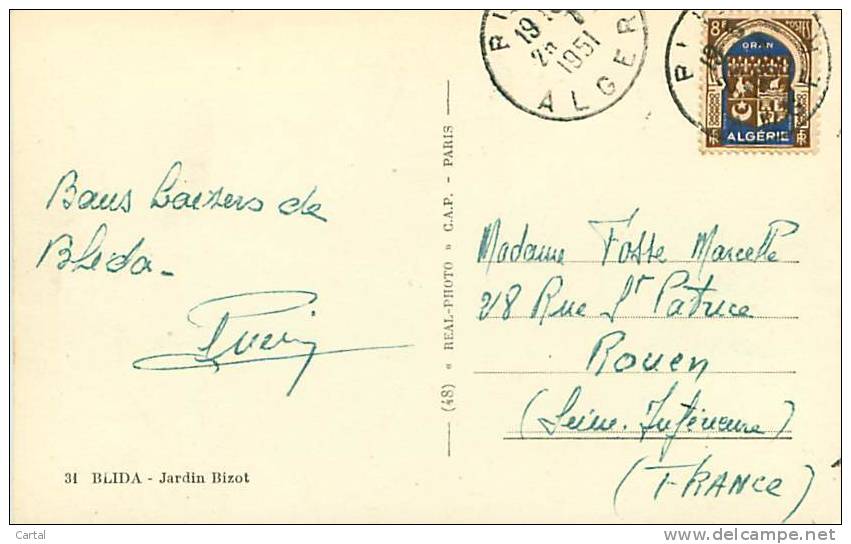 Bons baisers de
Blida -
31 BLIDA - Jardin Bizot
(48) « REAL-PHOTO » C.A.P. - PARIS
19
1951
ALGER
8F POSTES
ORAN
RF ALGÉRIE RF
Madame Fosse Marcelle
28 Rue St Patrice
Rouen
(Seine. Inférieure)
(FRANCE)
Cartal
http://www.delcampe.net